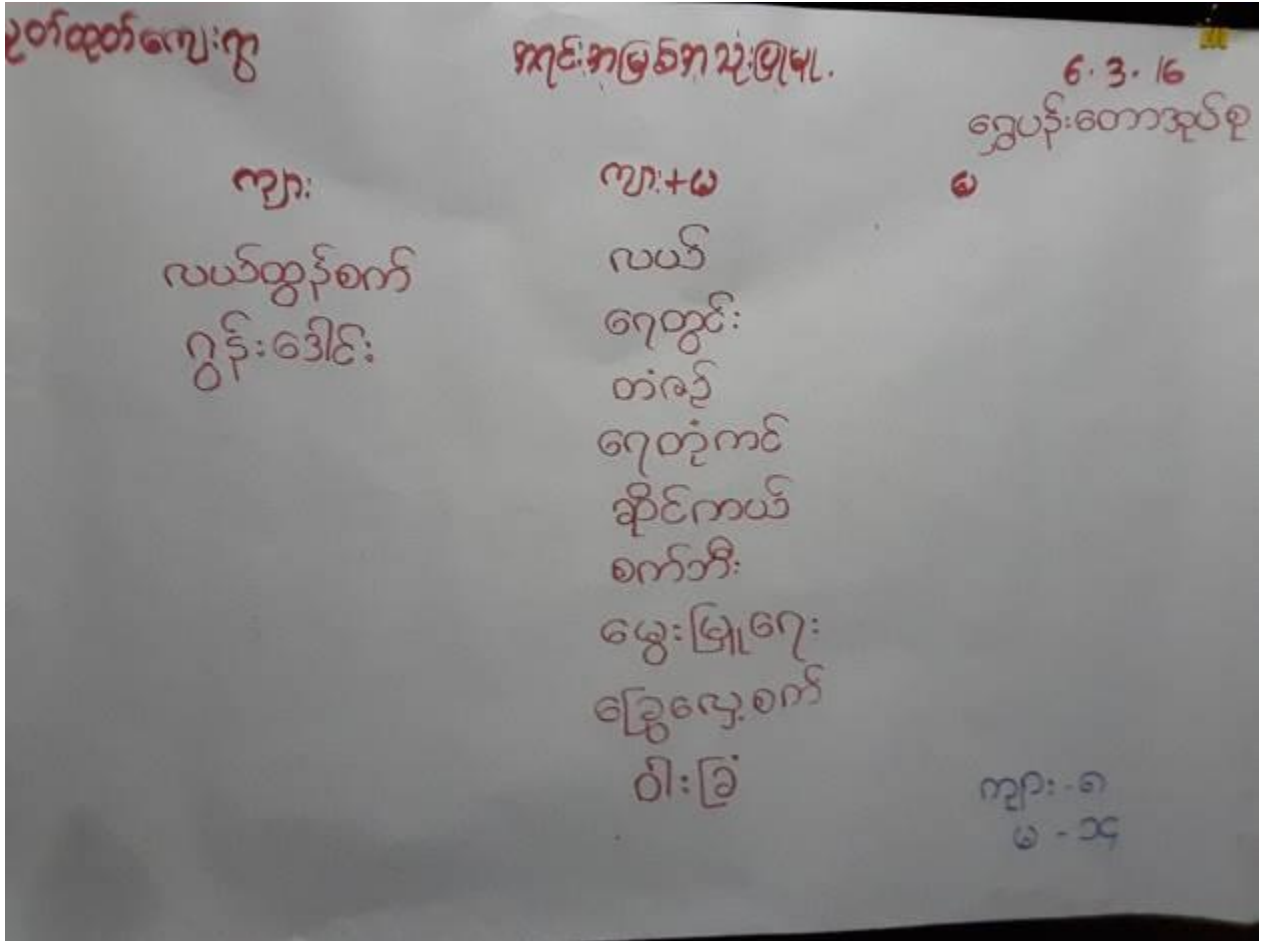 အုတ်ထုတ်ကျေးရွာ
အရင်းအမြစ်အသုံးပြုမှု.
6.3.16
ရွှေပန်းတောအုပ်စု
ကျား
ကျား+မ
မ
လယ်ထွန်စက်
ဂွန်းဒေါင်း
လယ်
ရေတွင်း
တံစဉ်
ရေတုံကင်
ဆိုင်ကယ်
စက်ဘီး
မွေးမြူရေး
ခြွေလှေ့စက်
ဝါးခြံ
ကျား - ၈
မ - ၁၄